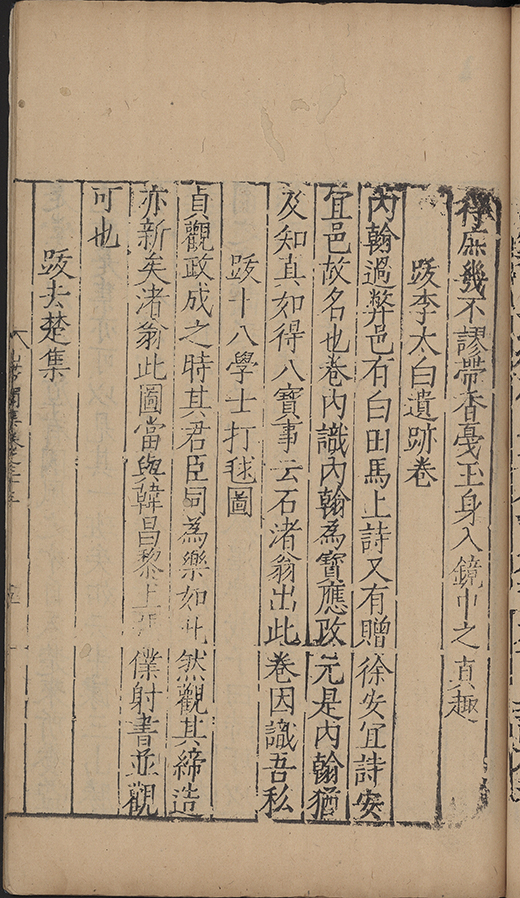 得庶幾不謬帶香戞玉身入鏡中之真趣
跋李太白遺跡卷
內翰過弊邑有白田馬上詩又有贈徐安宜詩安
宜邑故名也卷內識內翰為寶應改元是內翰猶
及知真如得八寶事云石渚翁出此卷因識吾私
跋十八學士打毬圖
貞觀政成之時其君臣同為樂如此然觀其締造
亦新矣渚翁此圖當與韓昌黎上 僕射書並觀
可也
跋去楚集